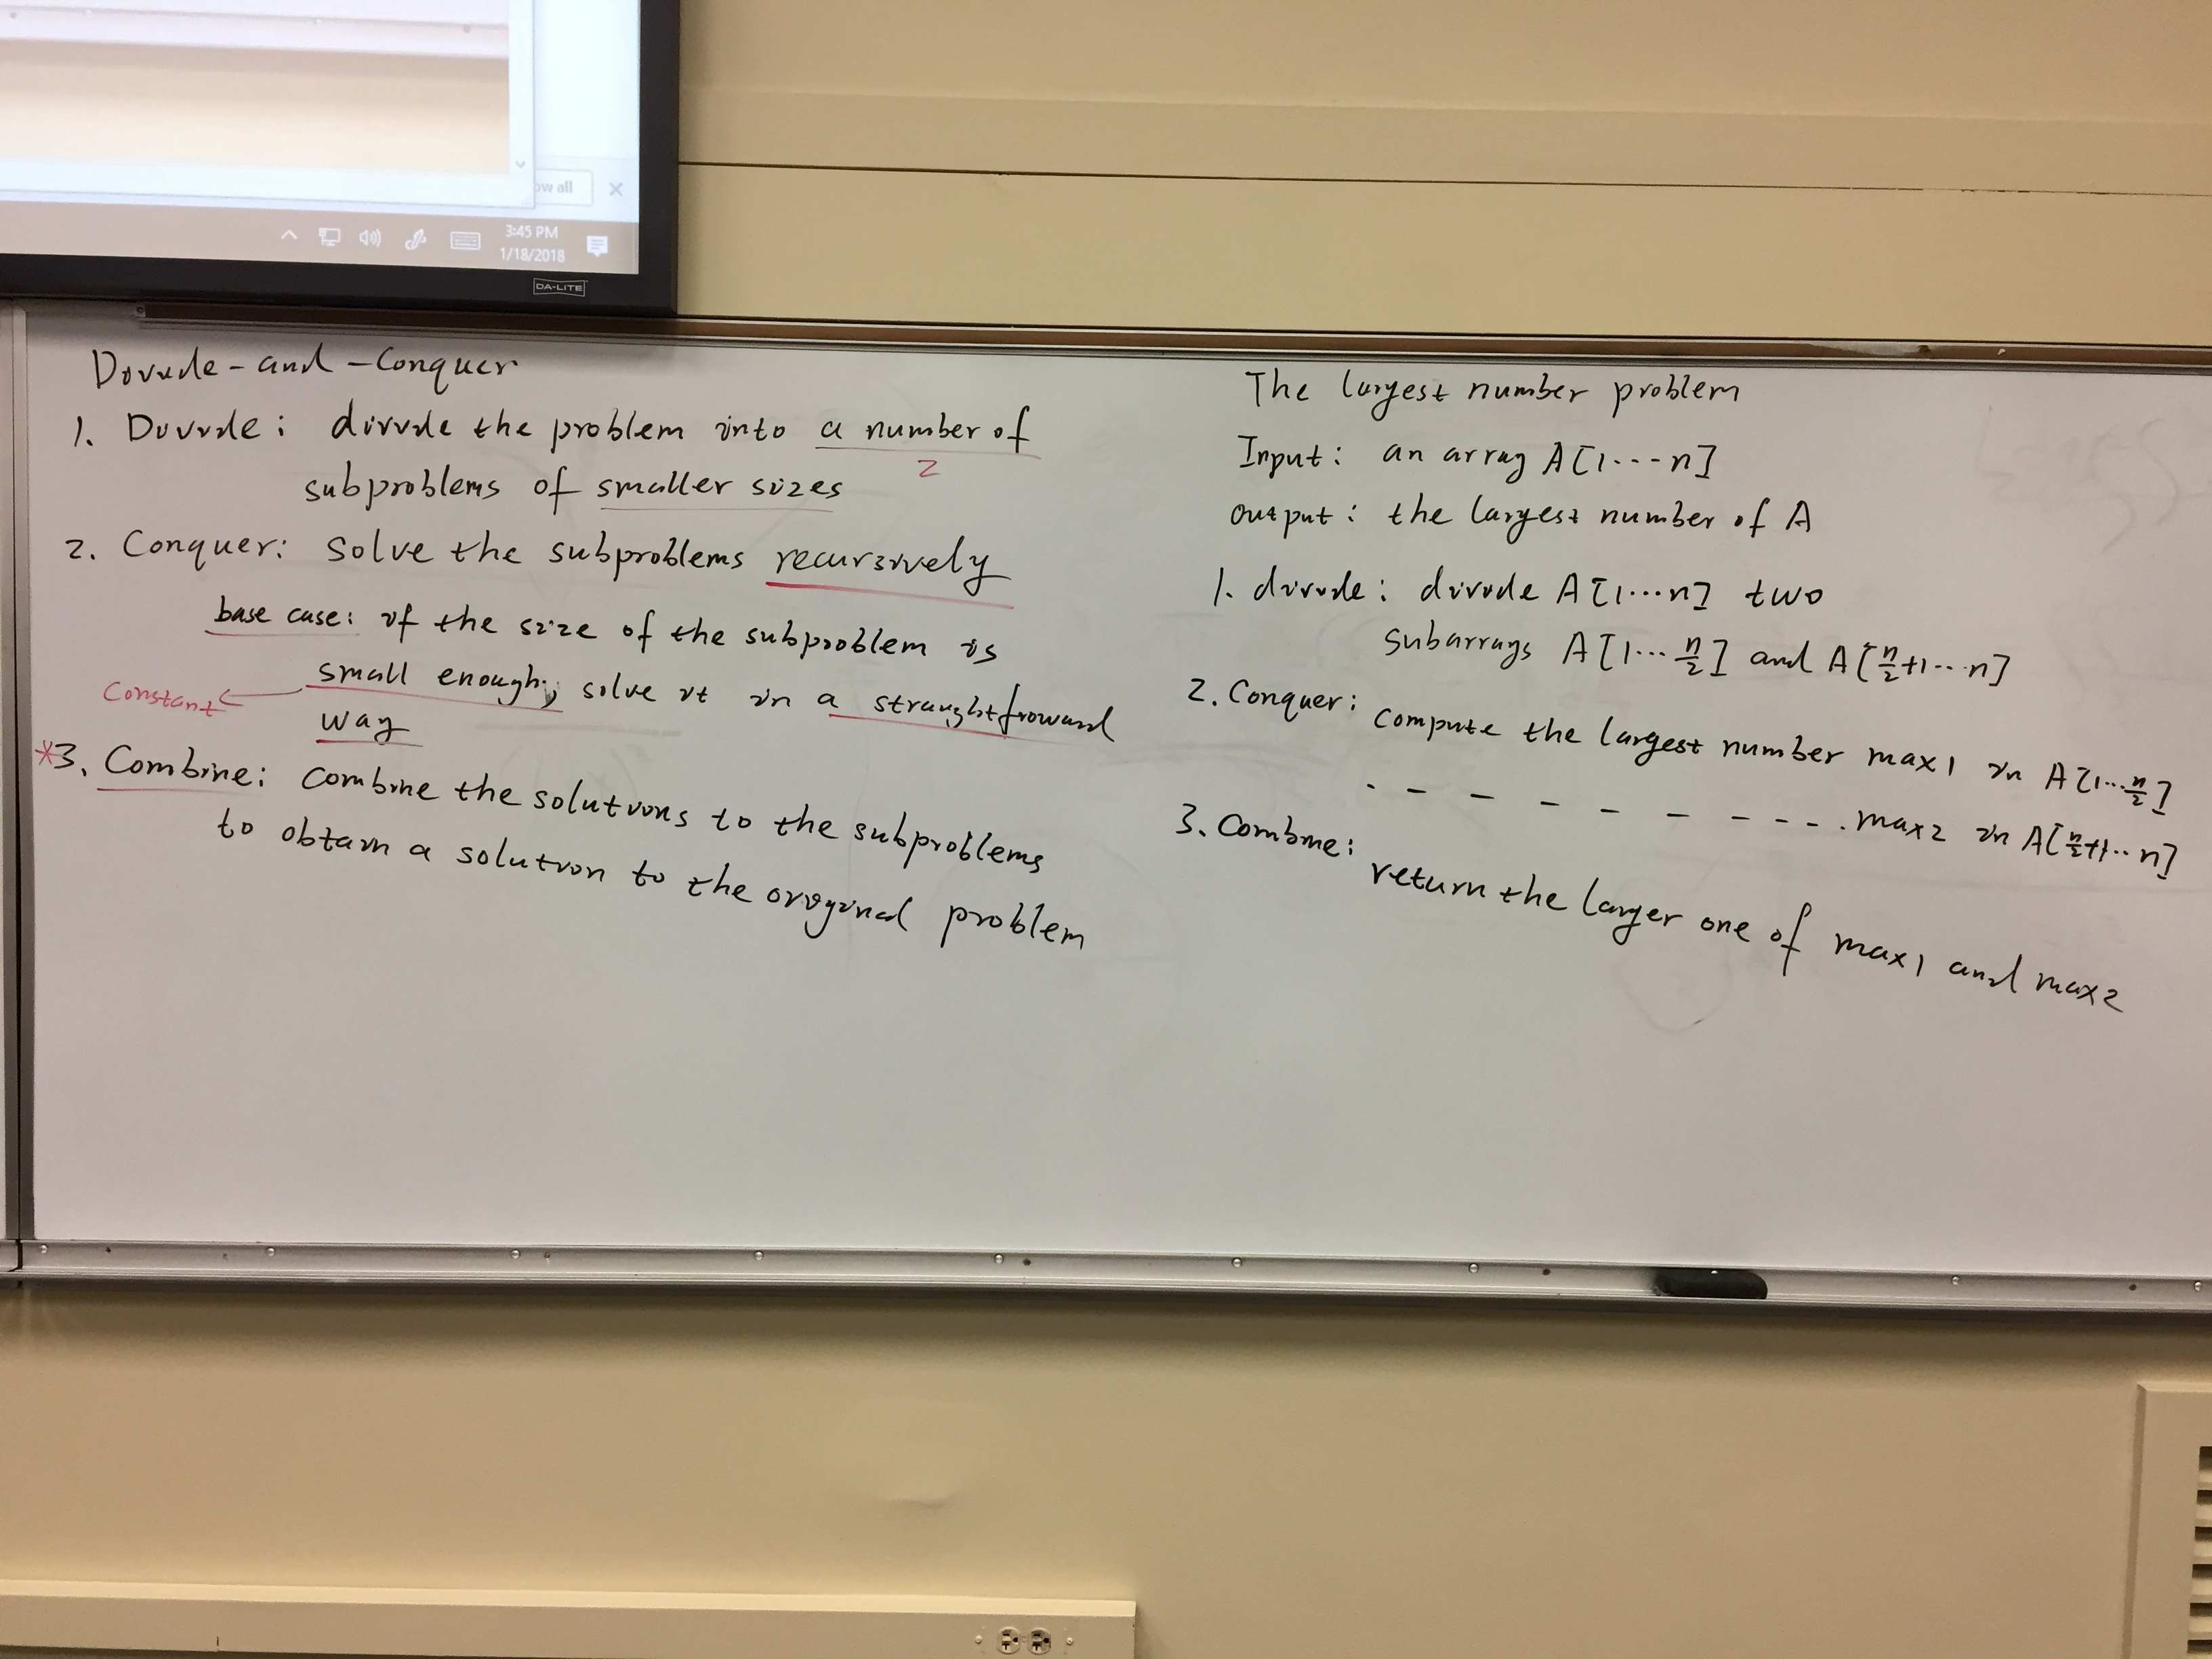 ow all
3:45 PM
1/18/2018
DA-LITE
Divide-and-Conquer
1. Divide: divide the problem into a number of
2
subproblems of smaller sizes
2. Conquer: solve the subproblems recursively
base case: if the size of the subproblem is
small enough, solve it in a straughtfroward
Constant
way
*3. Combine: combine the solutions to the subproblems
to obtain a solution to the original problem
The largest number problem
Input: an array A[1---n]
output: the largest number of A
1. divide: divide A[1...n] two
subarrays A[1...n/2] and A[n/2+1...n]
2. Conquer: compute the largest number max1 in A[1...n/2]
. - - - - - - - - - . max2 in A[n/2+1...n]
3. Combine:
return the larger one of max1 and max2